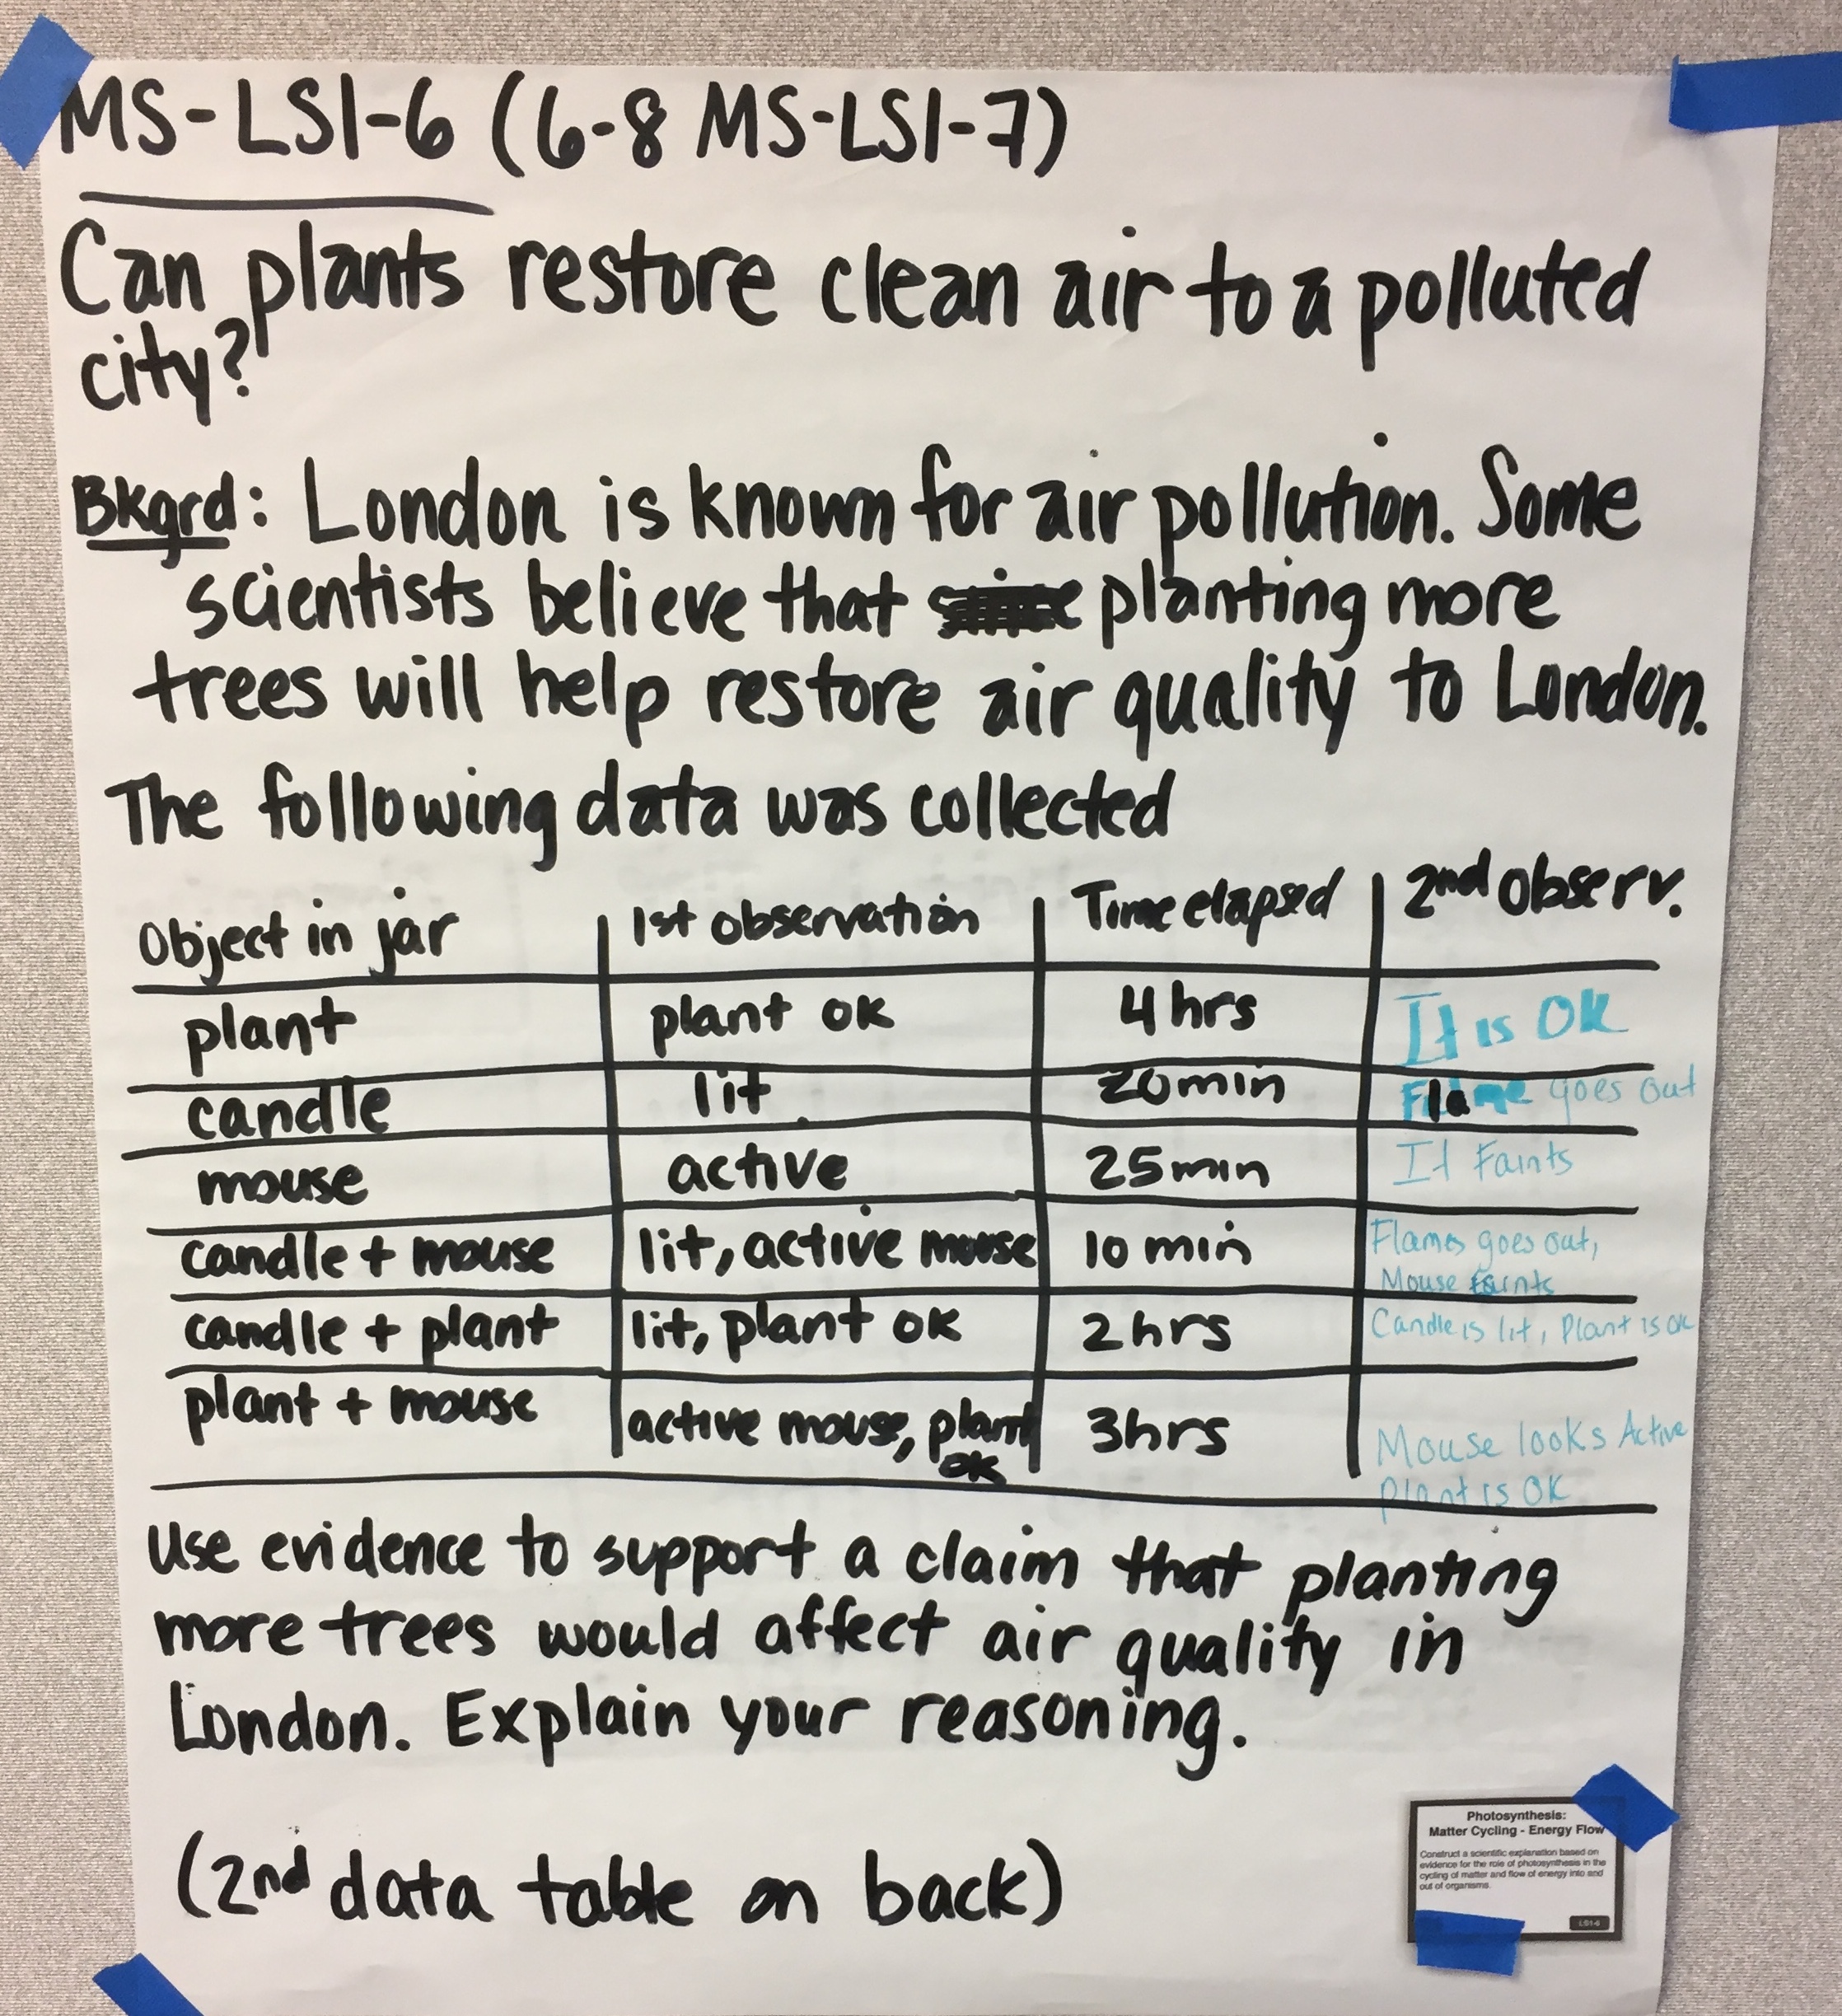 MS-LS1-6 (6-8 MS-LS1-7)
Can plants restore clean air to a polluted
city?
Bkgrd: London is known for air pollution. Some
scientists believe that planting more
trees will help restore air quality to London.
The following data was collected
Object in jar 1st observation Time elapsed 2nd observ.
plant plant ok 4 hrs It is OK
candle lit 20 min Flame goes out
mouse active 25 min It Faints
candle + mouse lit, active mouse 10 min Flames goes out,
Mouse faints
candle + plant lit, plant ok 2 hrs Candle is lit, Plant is ok
plant + mouse active mouse, plant 3 hrs Mouse looks Active
ok Plant is OK
Use evidence to support a claim that planting
more trees would affect air quality in
London. Explain your reasoning.
(2nd data table on back)
Photosynthesis:
Matter Cycling - Energy Flow
Construct a scientific explanation based on
evidence for the role of photosynthesis in the
cycling of matter and flow of energy into and
out of organisms.
LS1-6